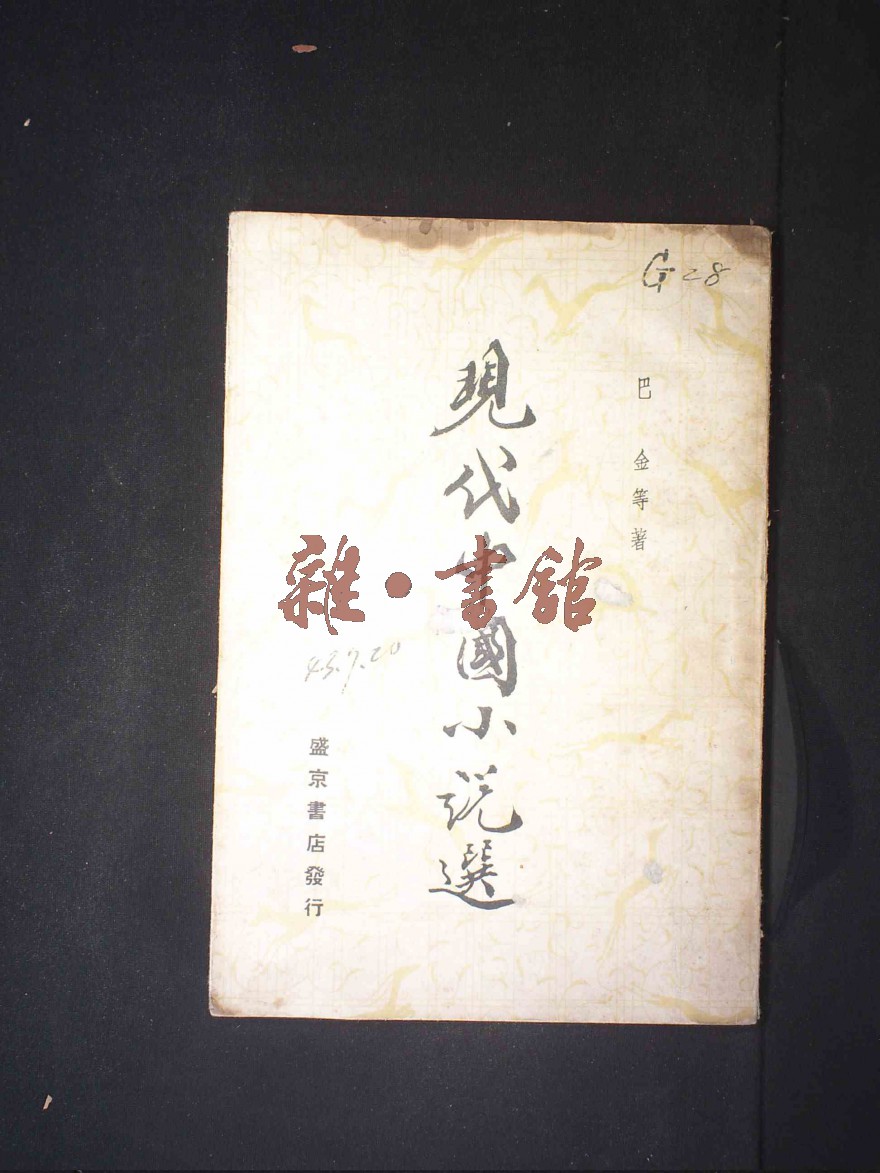 G28
巴金等著
現代中國小説選
雜·書館
43.7.20
盛京書店發行